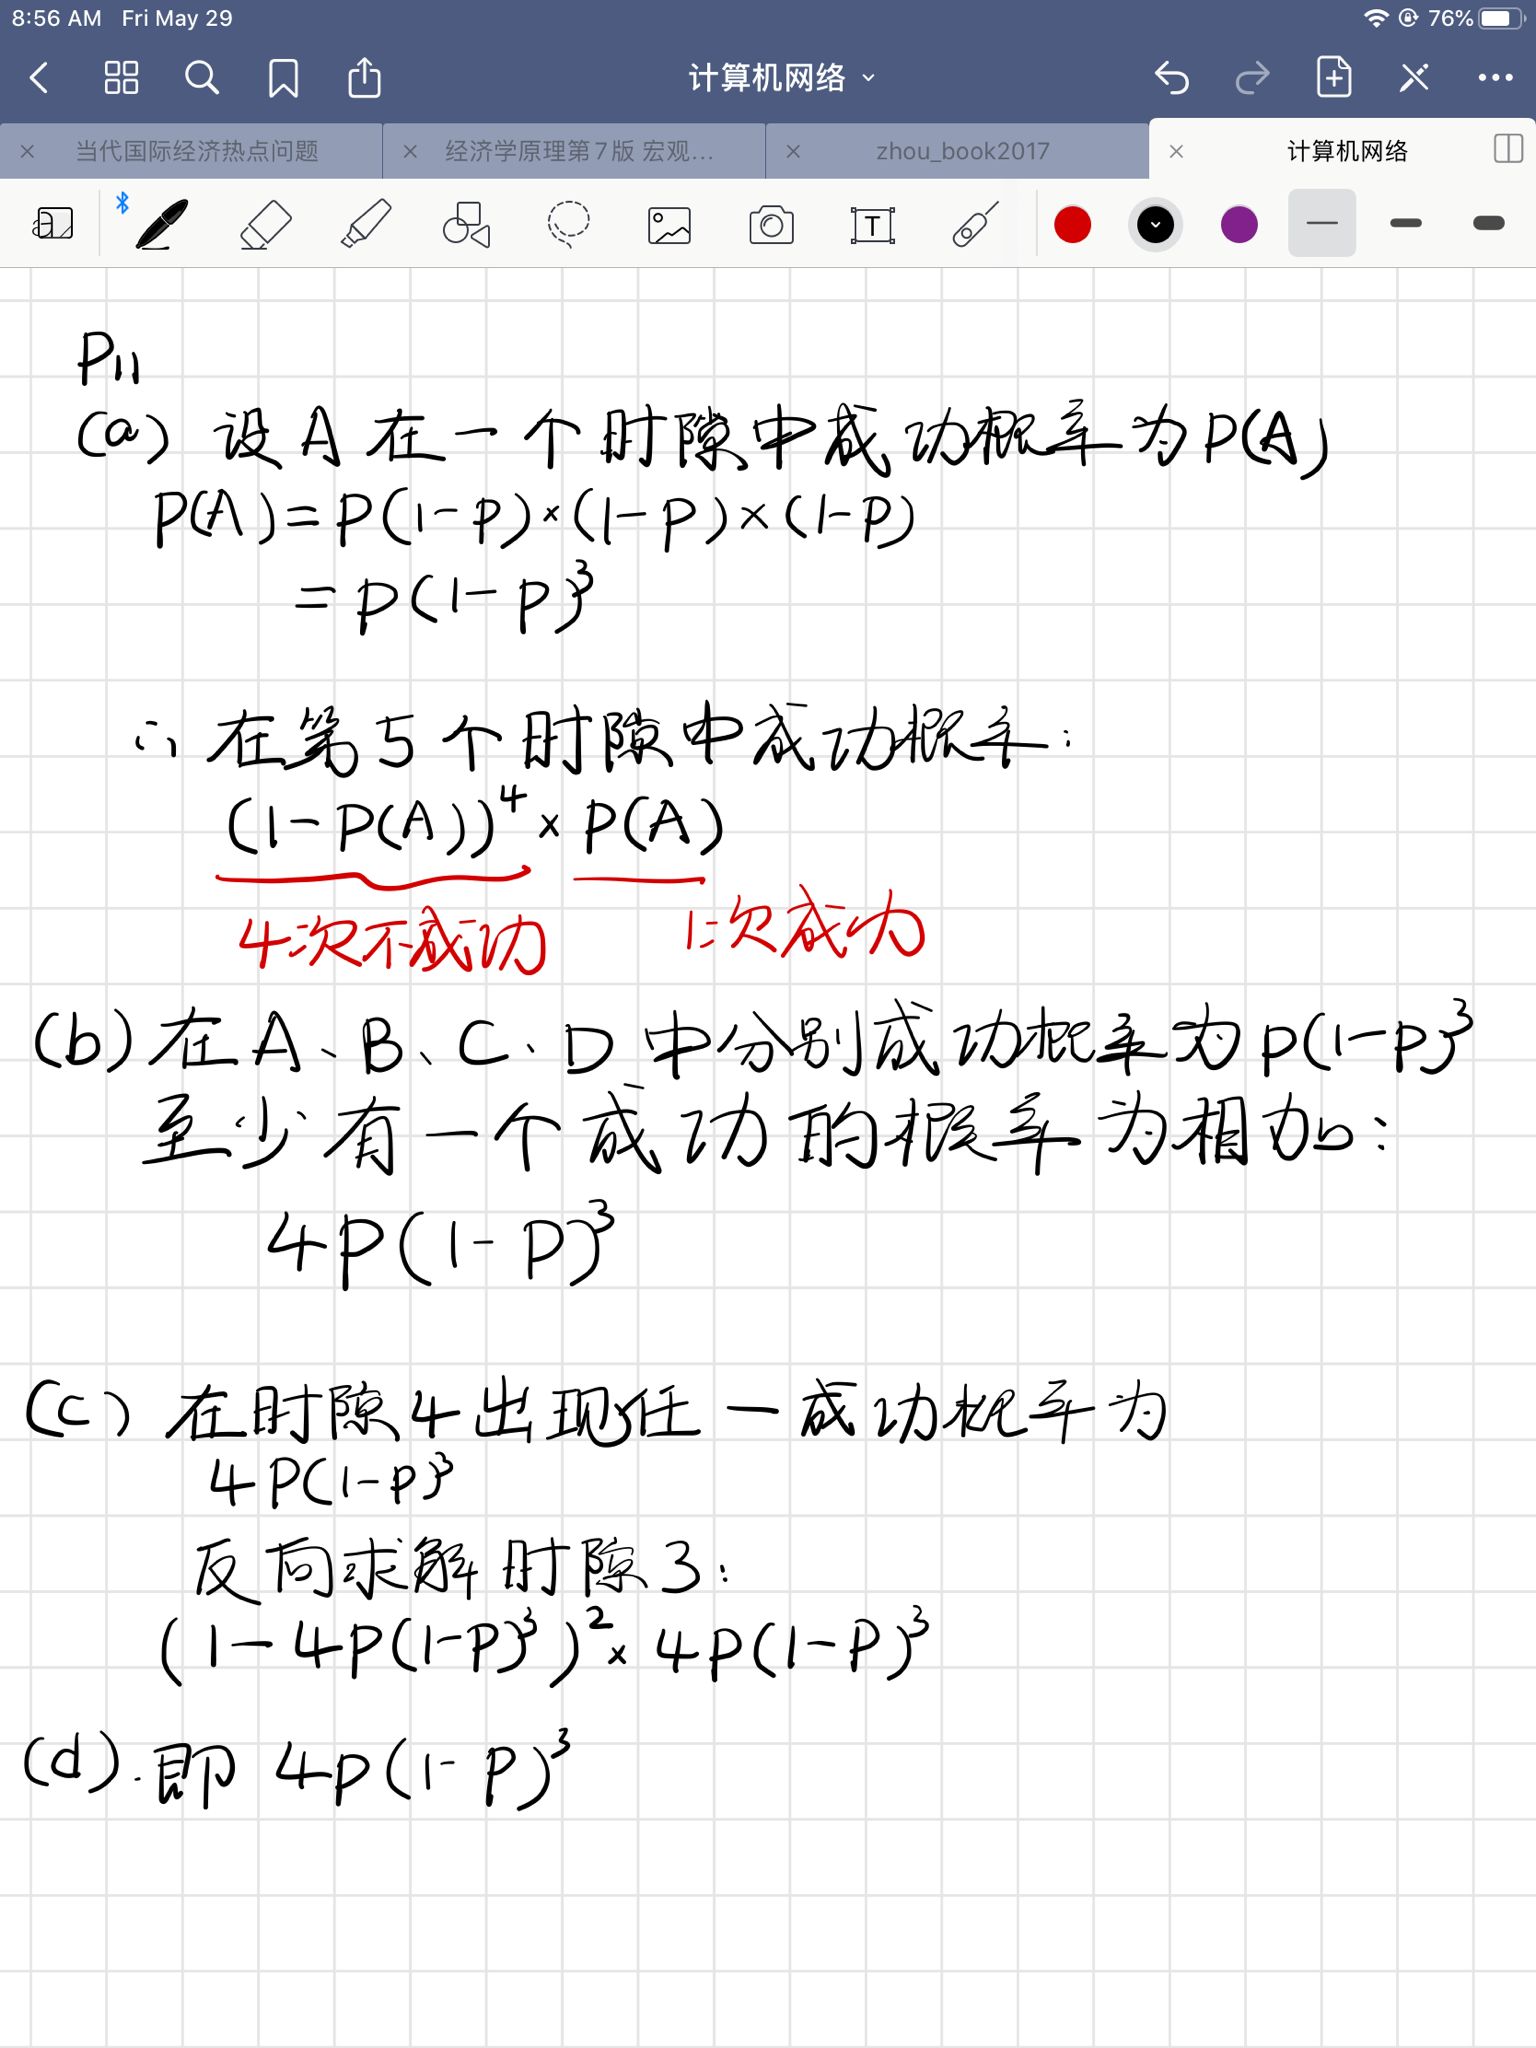 8:56 AM Fri May 29
76%
计算机网络
当代国际经济热点问题
经济学原理第7版 宏观...
zhou_book2017
计算机网络
P11
(a) 设A在一个时隙中成功概率为P(A)
P(A)=P(1-P)×(1-P)×(1-P)
=P(1-P)³
∴ 在第5个时隙中成功概率:
(1-P(A))⁴×P(A)
4次不成功 1次成功
(b) 在A、B、C、D中分别成功概率为P(1-P)³
至少有一个成功的概率为相加:
4P(1-P)³
(c) 在时隙4出现任一成功概率为
4P(1-P)³
反向求解时隙3:
(1-4P(1-P)³)²×4P(1-P)³
(d).即 4P(1-P)³